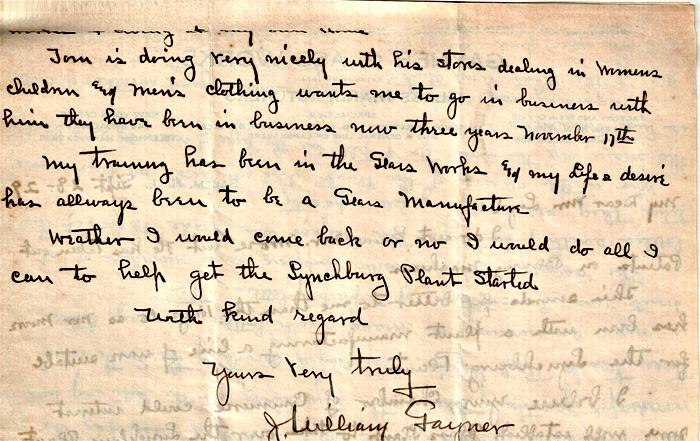 at my own home
Tom is doing very nicely with his stores dealing in womens
children & men's clothing wants me to go in business with
him they have been in business now three years November 17th
My training has been in the Glass Works & my Lifes desire
has allways been to be a Glass Manufacture
Weather I would come back or no I would do all I
can to help get the Lynchburg Plant Started
With kind regard
Yours Very truly
J. William Gayner